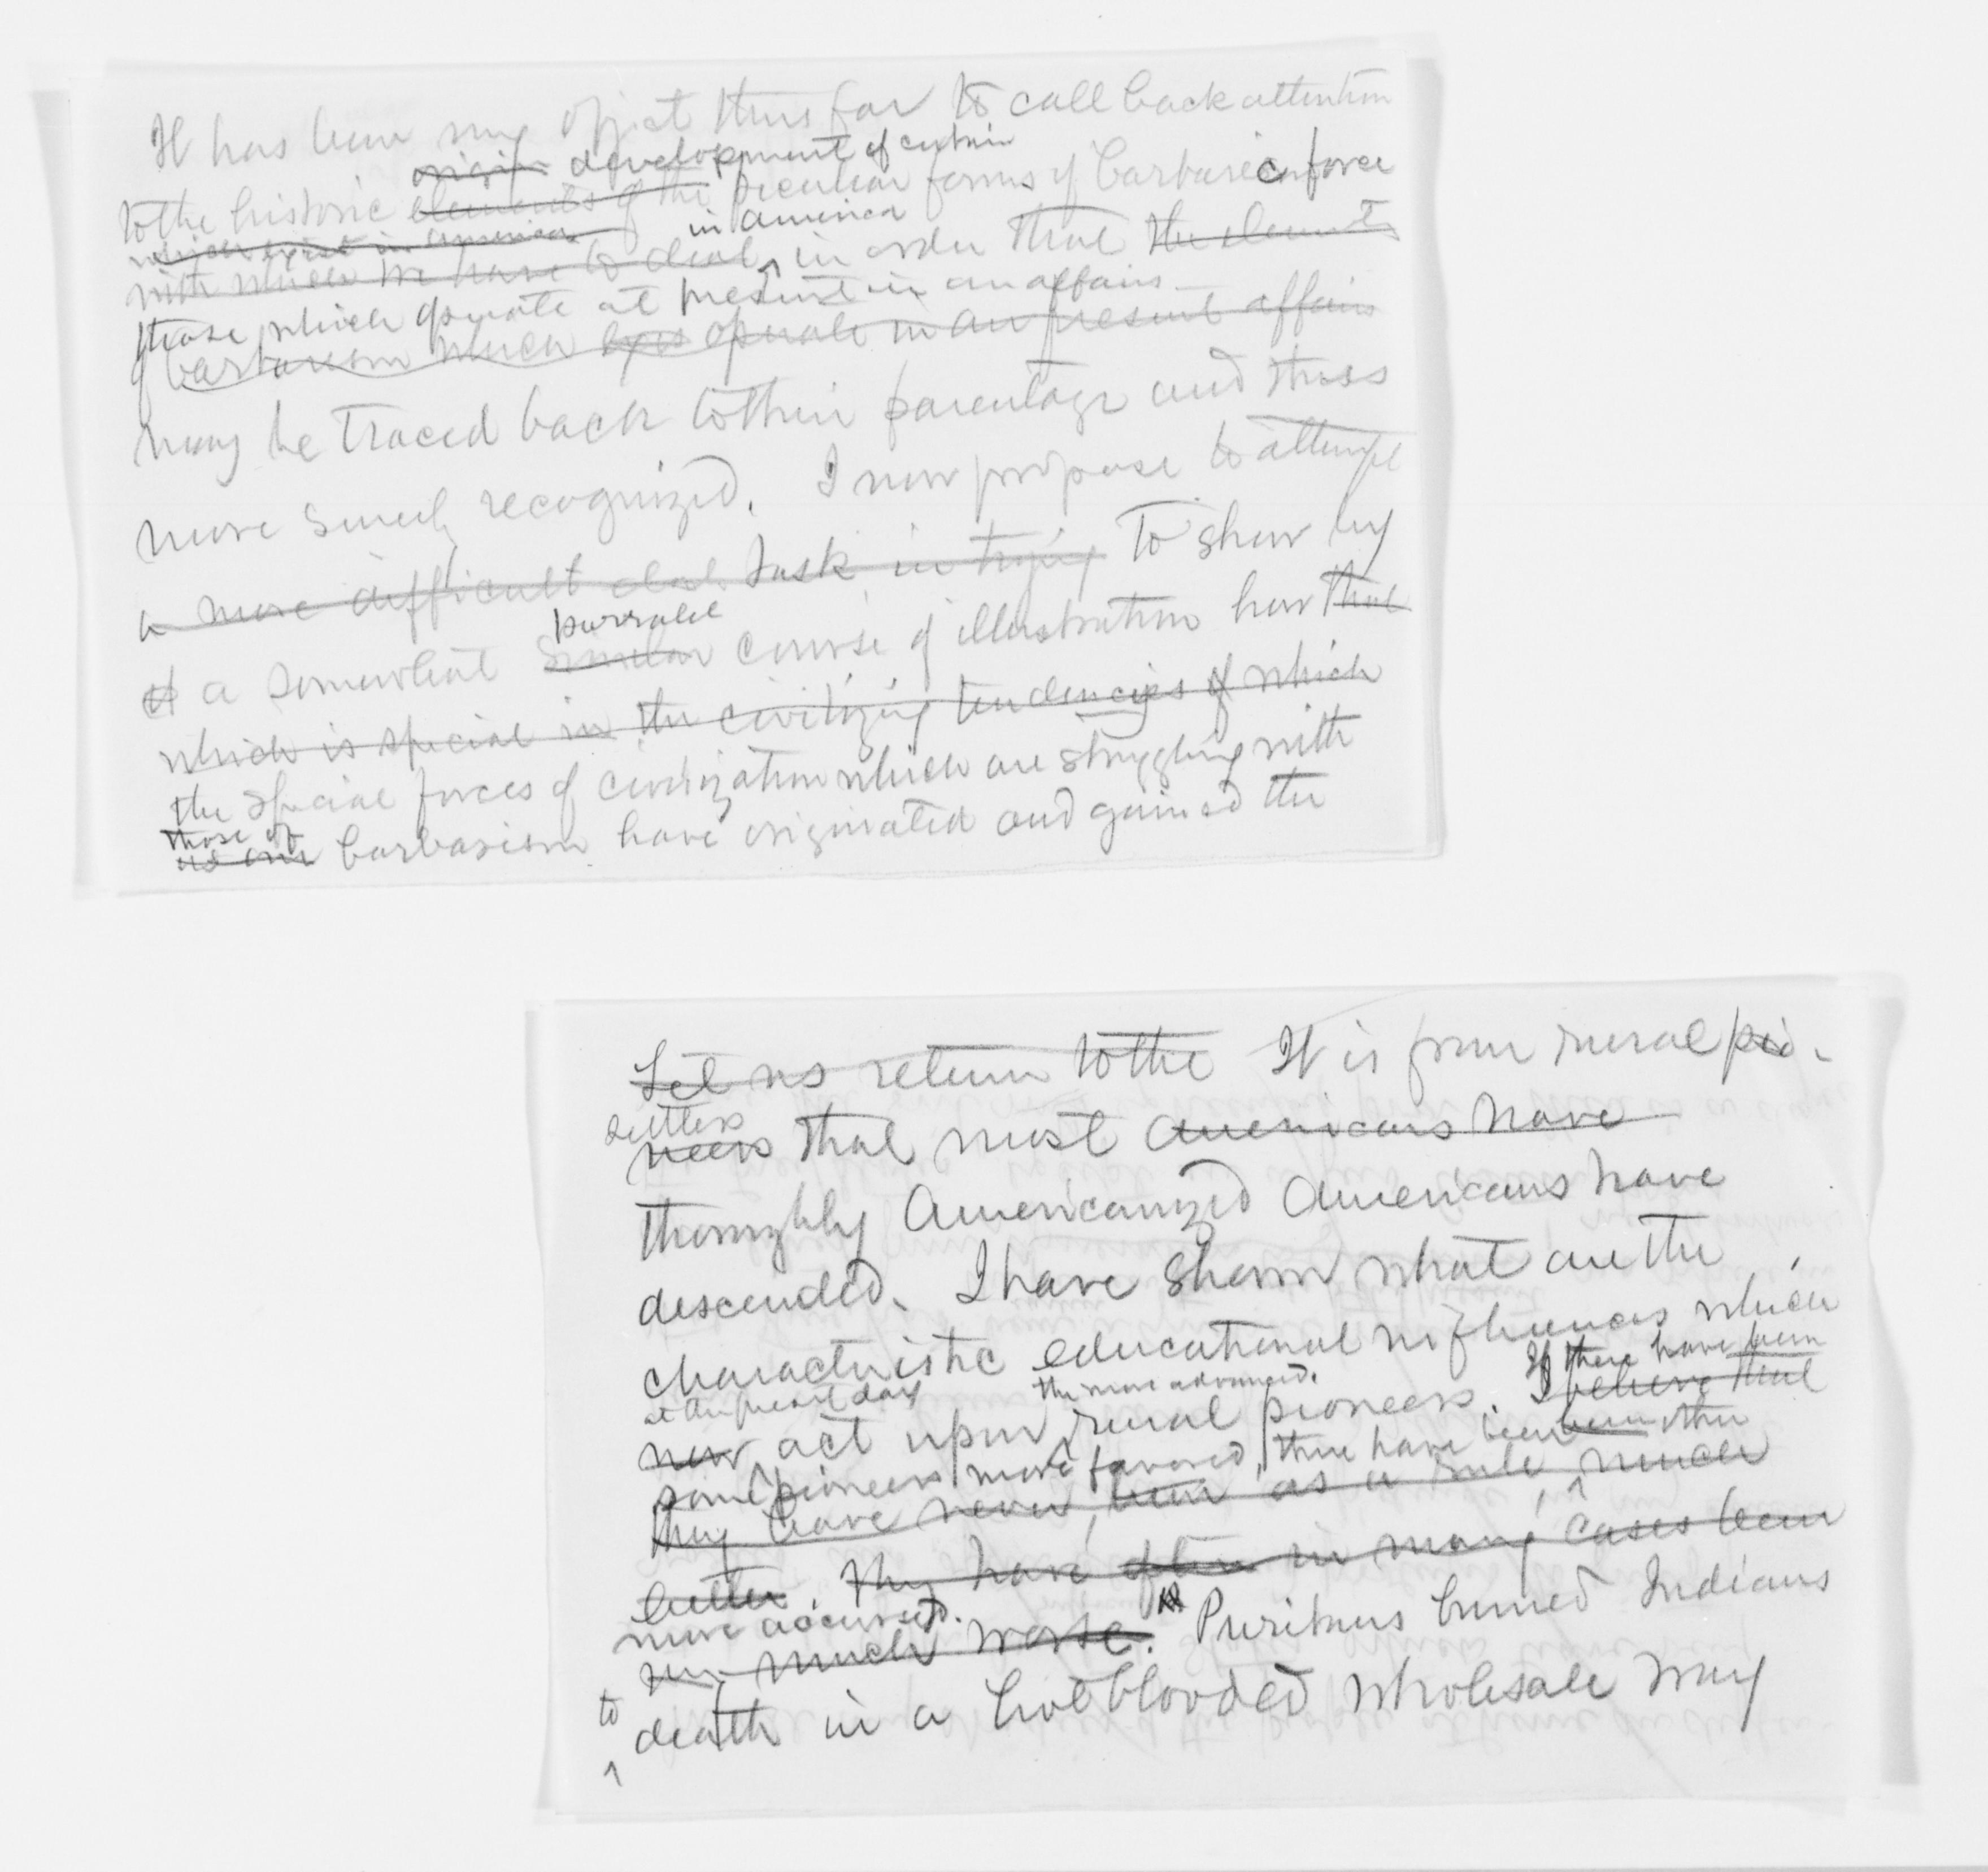 It has been my object thus far to call back attention
origin development of certain
to the historic elements of the peculiar forms of barbaric force
which exist in America in America
with which we have to deal, in order that the elements
those which operate at present in our affairs
of barbarism which operate in our present affairs
may be traced back to their parentage and thus
more surely recognized. I now propose to attempt
a more difficult task in trying to show by
parralel
a somewhat similar course of illustration how that
which is special in the civilizing tendencies of which
the special forces of civilization which are struggling with
those of
barbarism have originated and gained the
Let us return to the It is from rural pio-
settlers
neers that most Americans have
thoroughly Americanized Americans have
descended. I have shown what are the
characteristic educational influences which
at the present day the more advanced. If there have been
now act upon rural pioneers. I believe that
some pioneers more favored, there have been other
they have never been as a rule much
better. they have often in many cases been
more accursed.
much worse. Puritans burned Indians
to
death in a hot blooded wholesale way